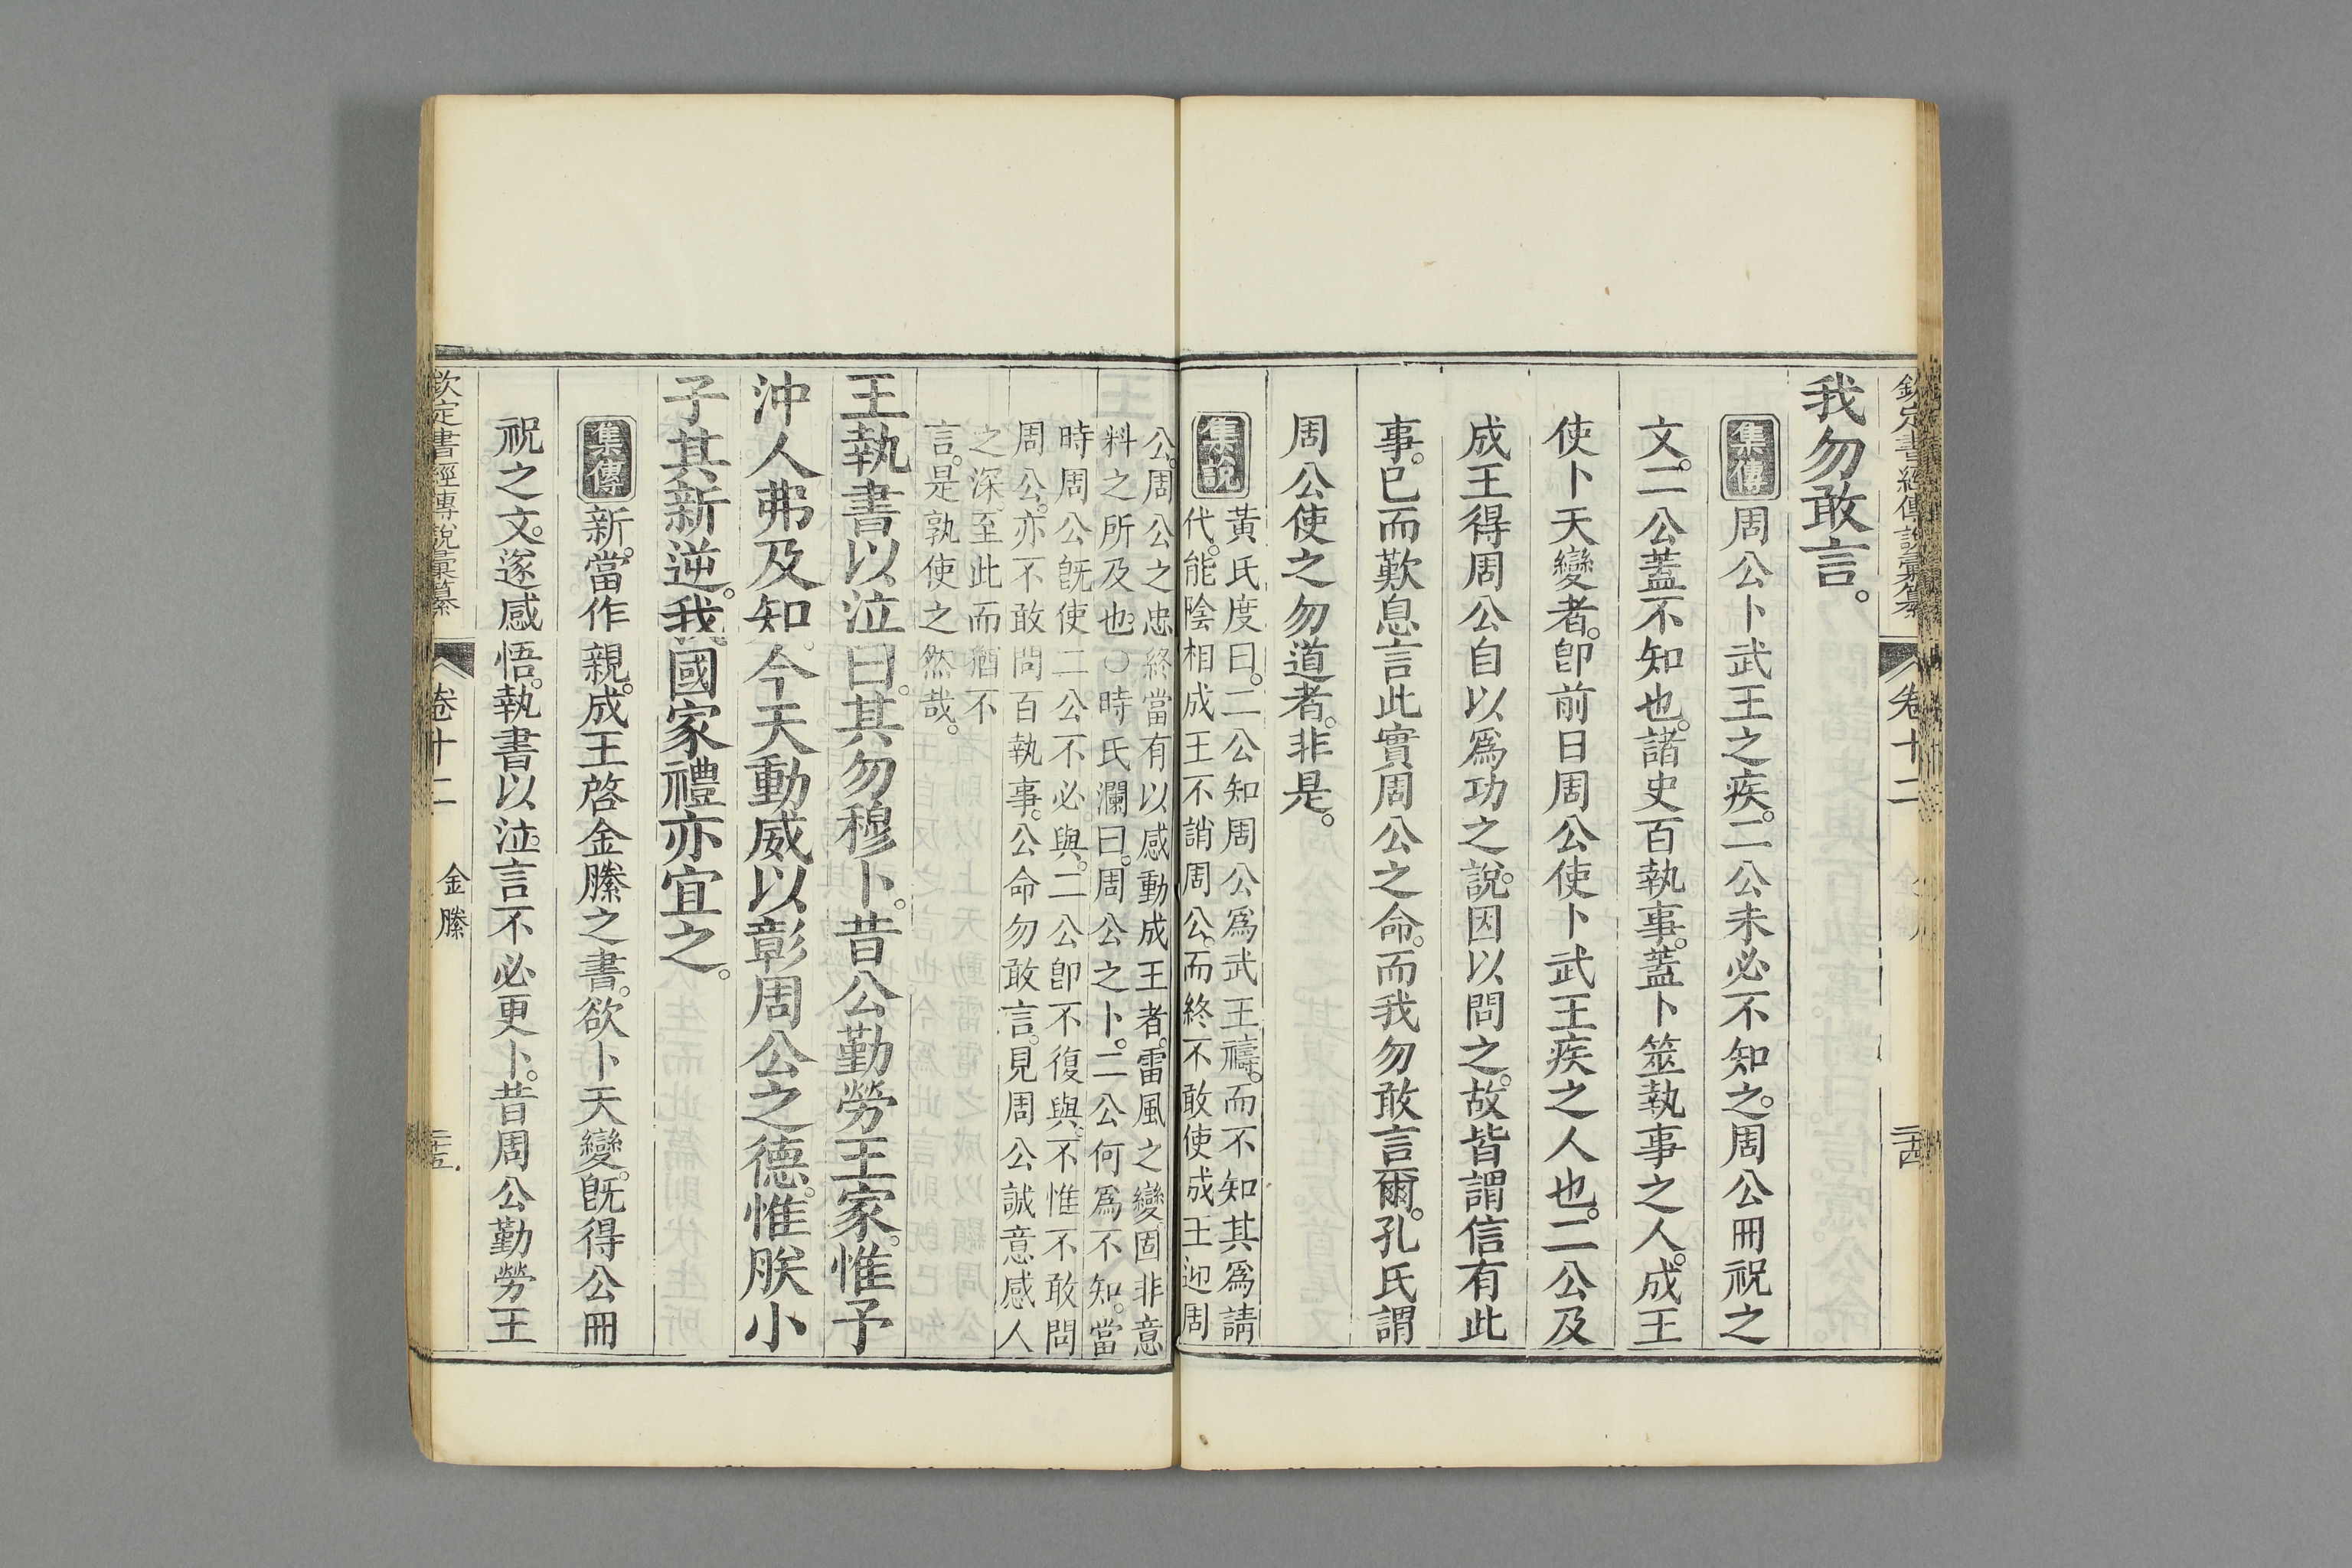 欽定書經傳說彙纂 卷十二 二十四
我勿敢言。
集傳 周公卜武王之疾。二公未必不知之。周公冊祝之
文。二公蓋不知也。諸史百執事。蓋卜筮執事之人。成王
使卜天變者。卽前日周公使卜武王疾之人也。二公及
成王得周公自以爲功之說。因以問之。故皆謂信有此
事。已而歎息言此實周公之命。而我勿敢言爾。孔氏謂
周公使之勿道者。非是。
集說 黃氏度曰。二公知周公爲武王禱。而不知其爲請
代。能陰相成王不誚周公。而終不敢使成王迎周
公。周公之忠終當有以感動成王者。雷風之變固非意
料之所及也。○時氏瀾曰。周公之卜。二公何爲不知。當
時周公旣使二公不必與。二公卽不復與。不惟不敢問
周公。亦不敢問百執事。公命勿敢言。見周公誠意感人
之深。至此而猶不
言。是孰使之然哉。
王執書以泣曰。其勿穆卜。昔公勤勞王家。惟予
沖人弗及知。今天動威以彰周公之德。惟朕小
子其新逆。我國家禮亦宜之。
集傳 新。當作親。成王啓金縢之書。欲卜天變。旣得公冊
祝之文。遂感悟。執書以泣。言不必更卜。昔周公勤勞王
欽定書經傳說彙纂 卷十二 金縢 二十五